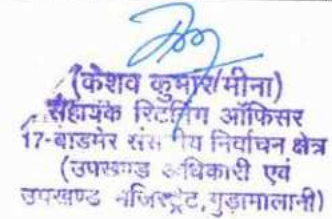 (केशव कुमार मीना)
सहायक रिटर्निंग ऑफिसर
17-बाडमेर संसदीय निर्वाचन क्षेत्र
(उपखण्ड अधिकारी एवं
उपखण्ड मजिस्ट्रेट,गुडामालानी)